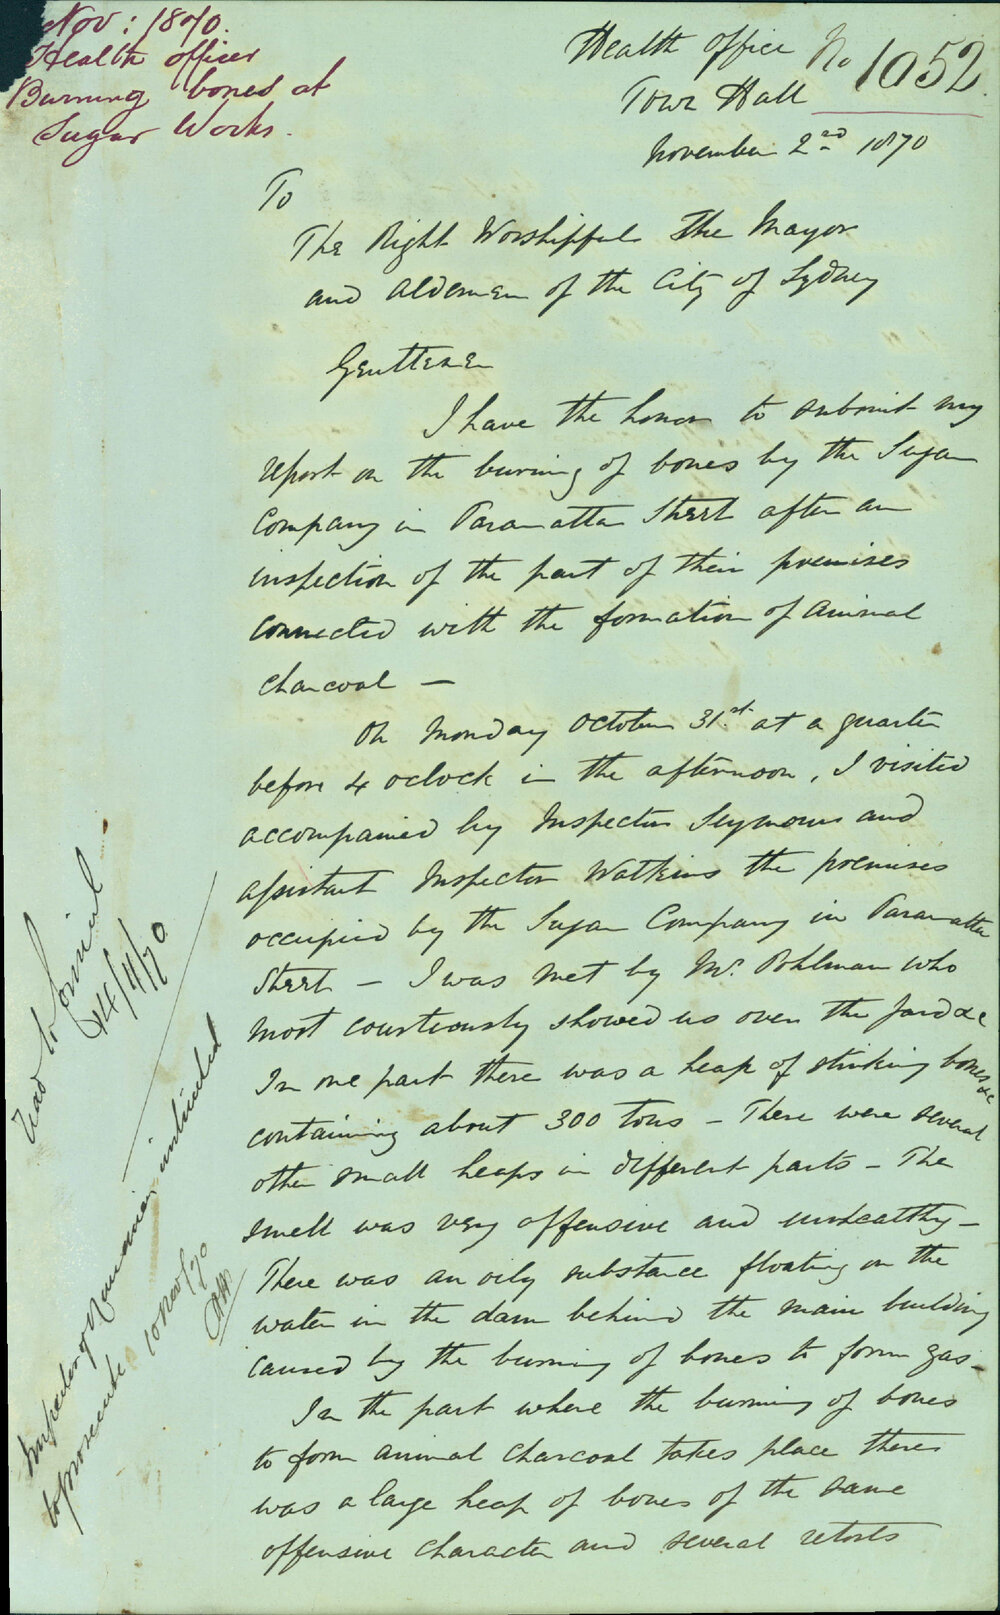 Nov: 1870.
Health officer
Burning bones at
Sugar Works.
Health Office
No 1052.
Town Hall
November 2nd 1870
To
The Right Worshipful The Mayor
and Aldermen of the City of Sydney
Gentlemen
I have the honor to submit my
report on the burning of bones by the Sugar
Company in Paramatta Street after an
inspection of the part of their premises
connected with the formation of animal
charcoal —
On Monday October 31st. at a quarter
before 4 oclock in the afternoon, I visited
accompanied by Inspector Seymour and
assistant Inspector Watkins the premises
occupied by the Sugar Company in Paramatta
Street — I was met by Mr. Pohlman who
most courteously showed us over the yard &c
In one part there was a heap of stinking bones &c
containing about 300 tons — There were several
other small heaps in different parts — The
smell was very offensive and unhealthy —
There was an oily substance floating on the
water in the dam behind the main building
caused by the burning of bones to form gas —
In the part where the burning of bones
to form animal charcoal takes place there
was a large heap of bones of the same
offensive character and several retorts
14/11/70
Inspector of Nuisances instructed
to prosecute 10 Nov/70